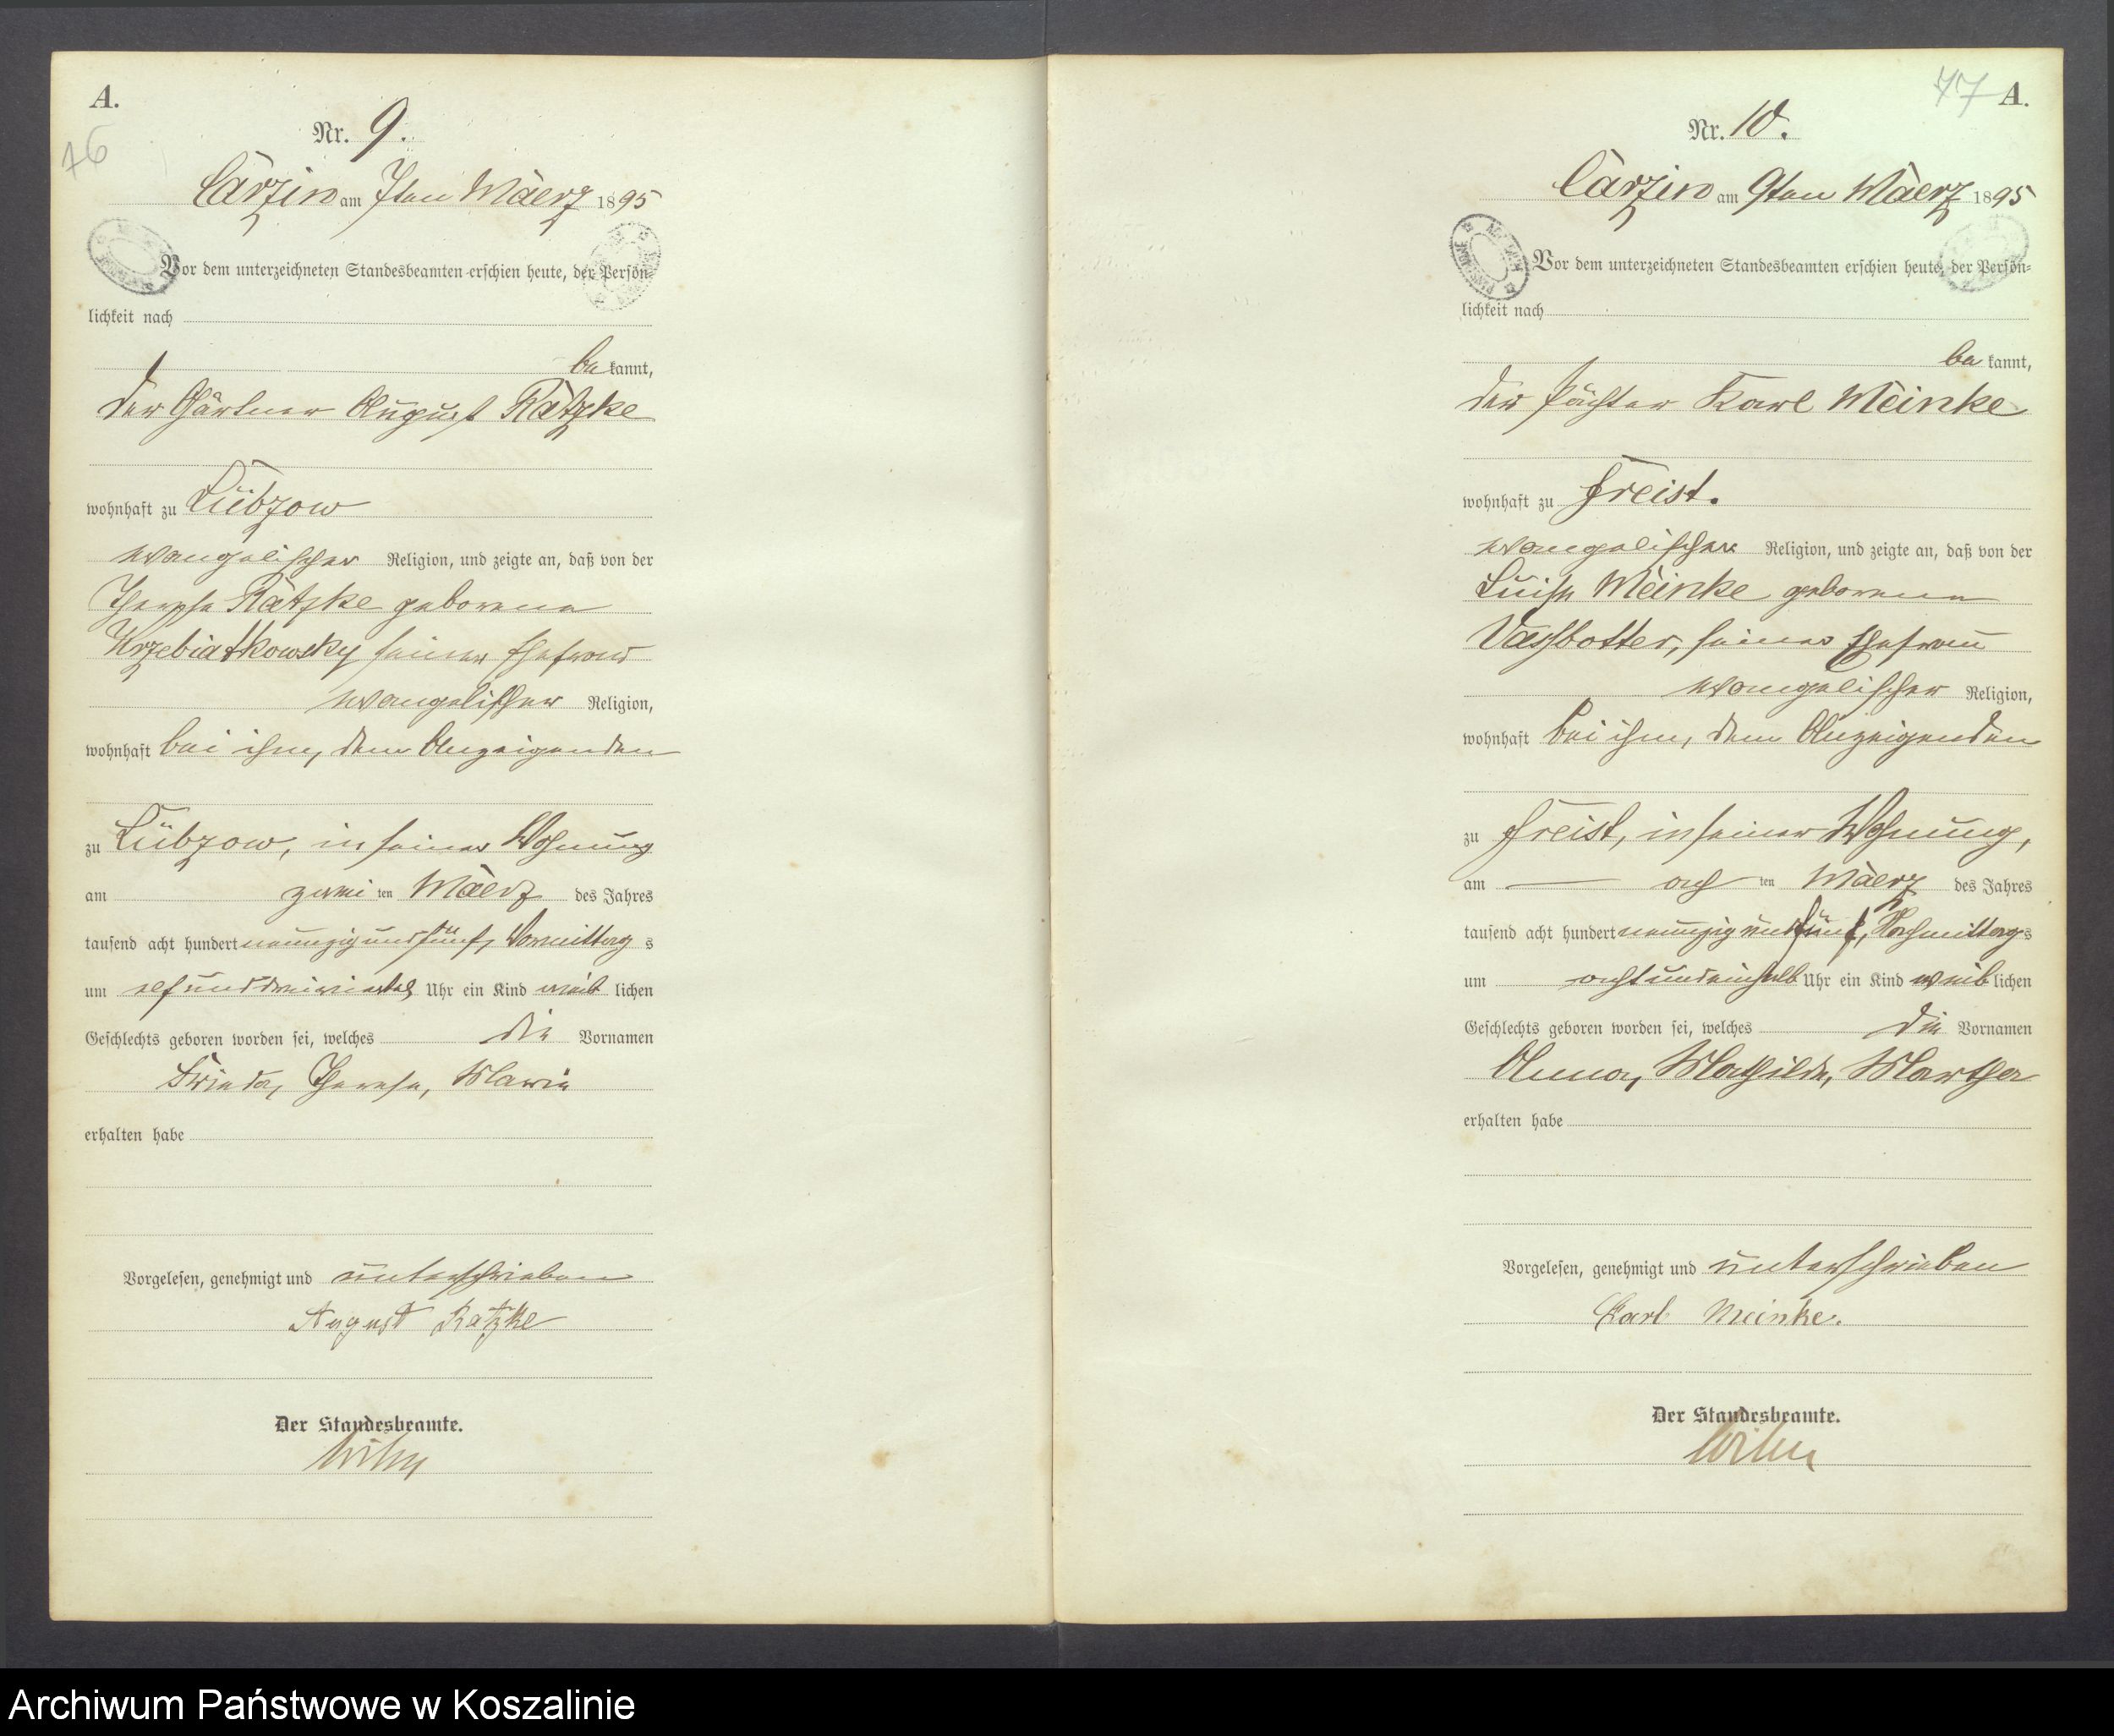 A.
76
Nr. 9.
Carzin am 7ten Maerz 1895
Vor dem unterzeichneten Standesbeamten erschien heute, der Persön-
lichkeit nach
be kannt,
der Gärtner August Ratzke
wohnhaft zu Lübzow
evangelischer Religion, und zeigte an, daß von der
Therese Ratzke geborene
Krzebiatkowsky seiner Ehefrau
evangelischer Religion,
wohnhaft bei ihm, dem Anzeigenden
zu Lübzow, in seiner Wohnung
am zwei ten Maerz des Jahres
tausend acht hundert neunzig und fünf, Vormittag s
um elf und dreiviertel Uhr ein Kind weib lichen
Geschlechts geboren worden sei, welches die Vornamen
Frieda, Therese, Marie
erhalten habe
Vorgelesen, genehmigt und unterschrieben
August Ratzke
Der Standesbeamte.
77 A.
Nr. 10.
Carzin am 9ten Maerz 1895
Vor dem unterzeichneten Standesbeamten erschien heute, der Persön-
lichkeit nach
be kannt,
der Pächter Karl Meinke
wohnhaft zu Freist.
evangelischer Religion, und zeigte an, daß von der
Luise Meinke geborene
seiner Ehefrau
evangelischer Religion,
wohnhaft bei ihm, dem Anzeigenden
zu Freist, in seiner Wohnung,
am ach ten Maerz des Jahres
tausend acht hundert neunzig und fünf, Nachmittag s
um acht und einhalb Uhr ein Kind weib lichen
Geschlechts geboren worden sei, welches die Vornamen
Anna, Mathilde, Martha
erhalten habe
Vorgelesen, genehmigt und unterschrieben
Karl Meinke.
Der Standesbeamte.
Archiwum Państwowe w Koszalinie